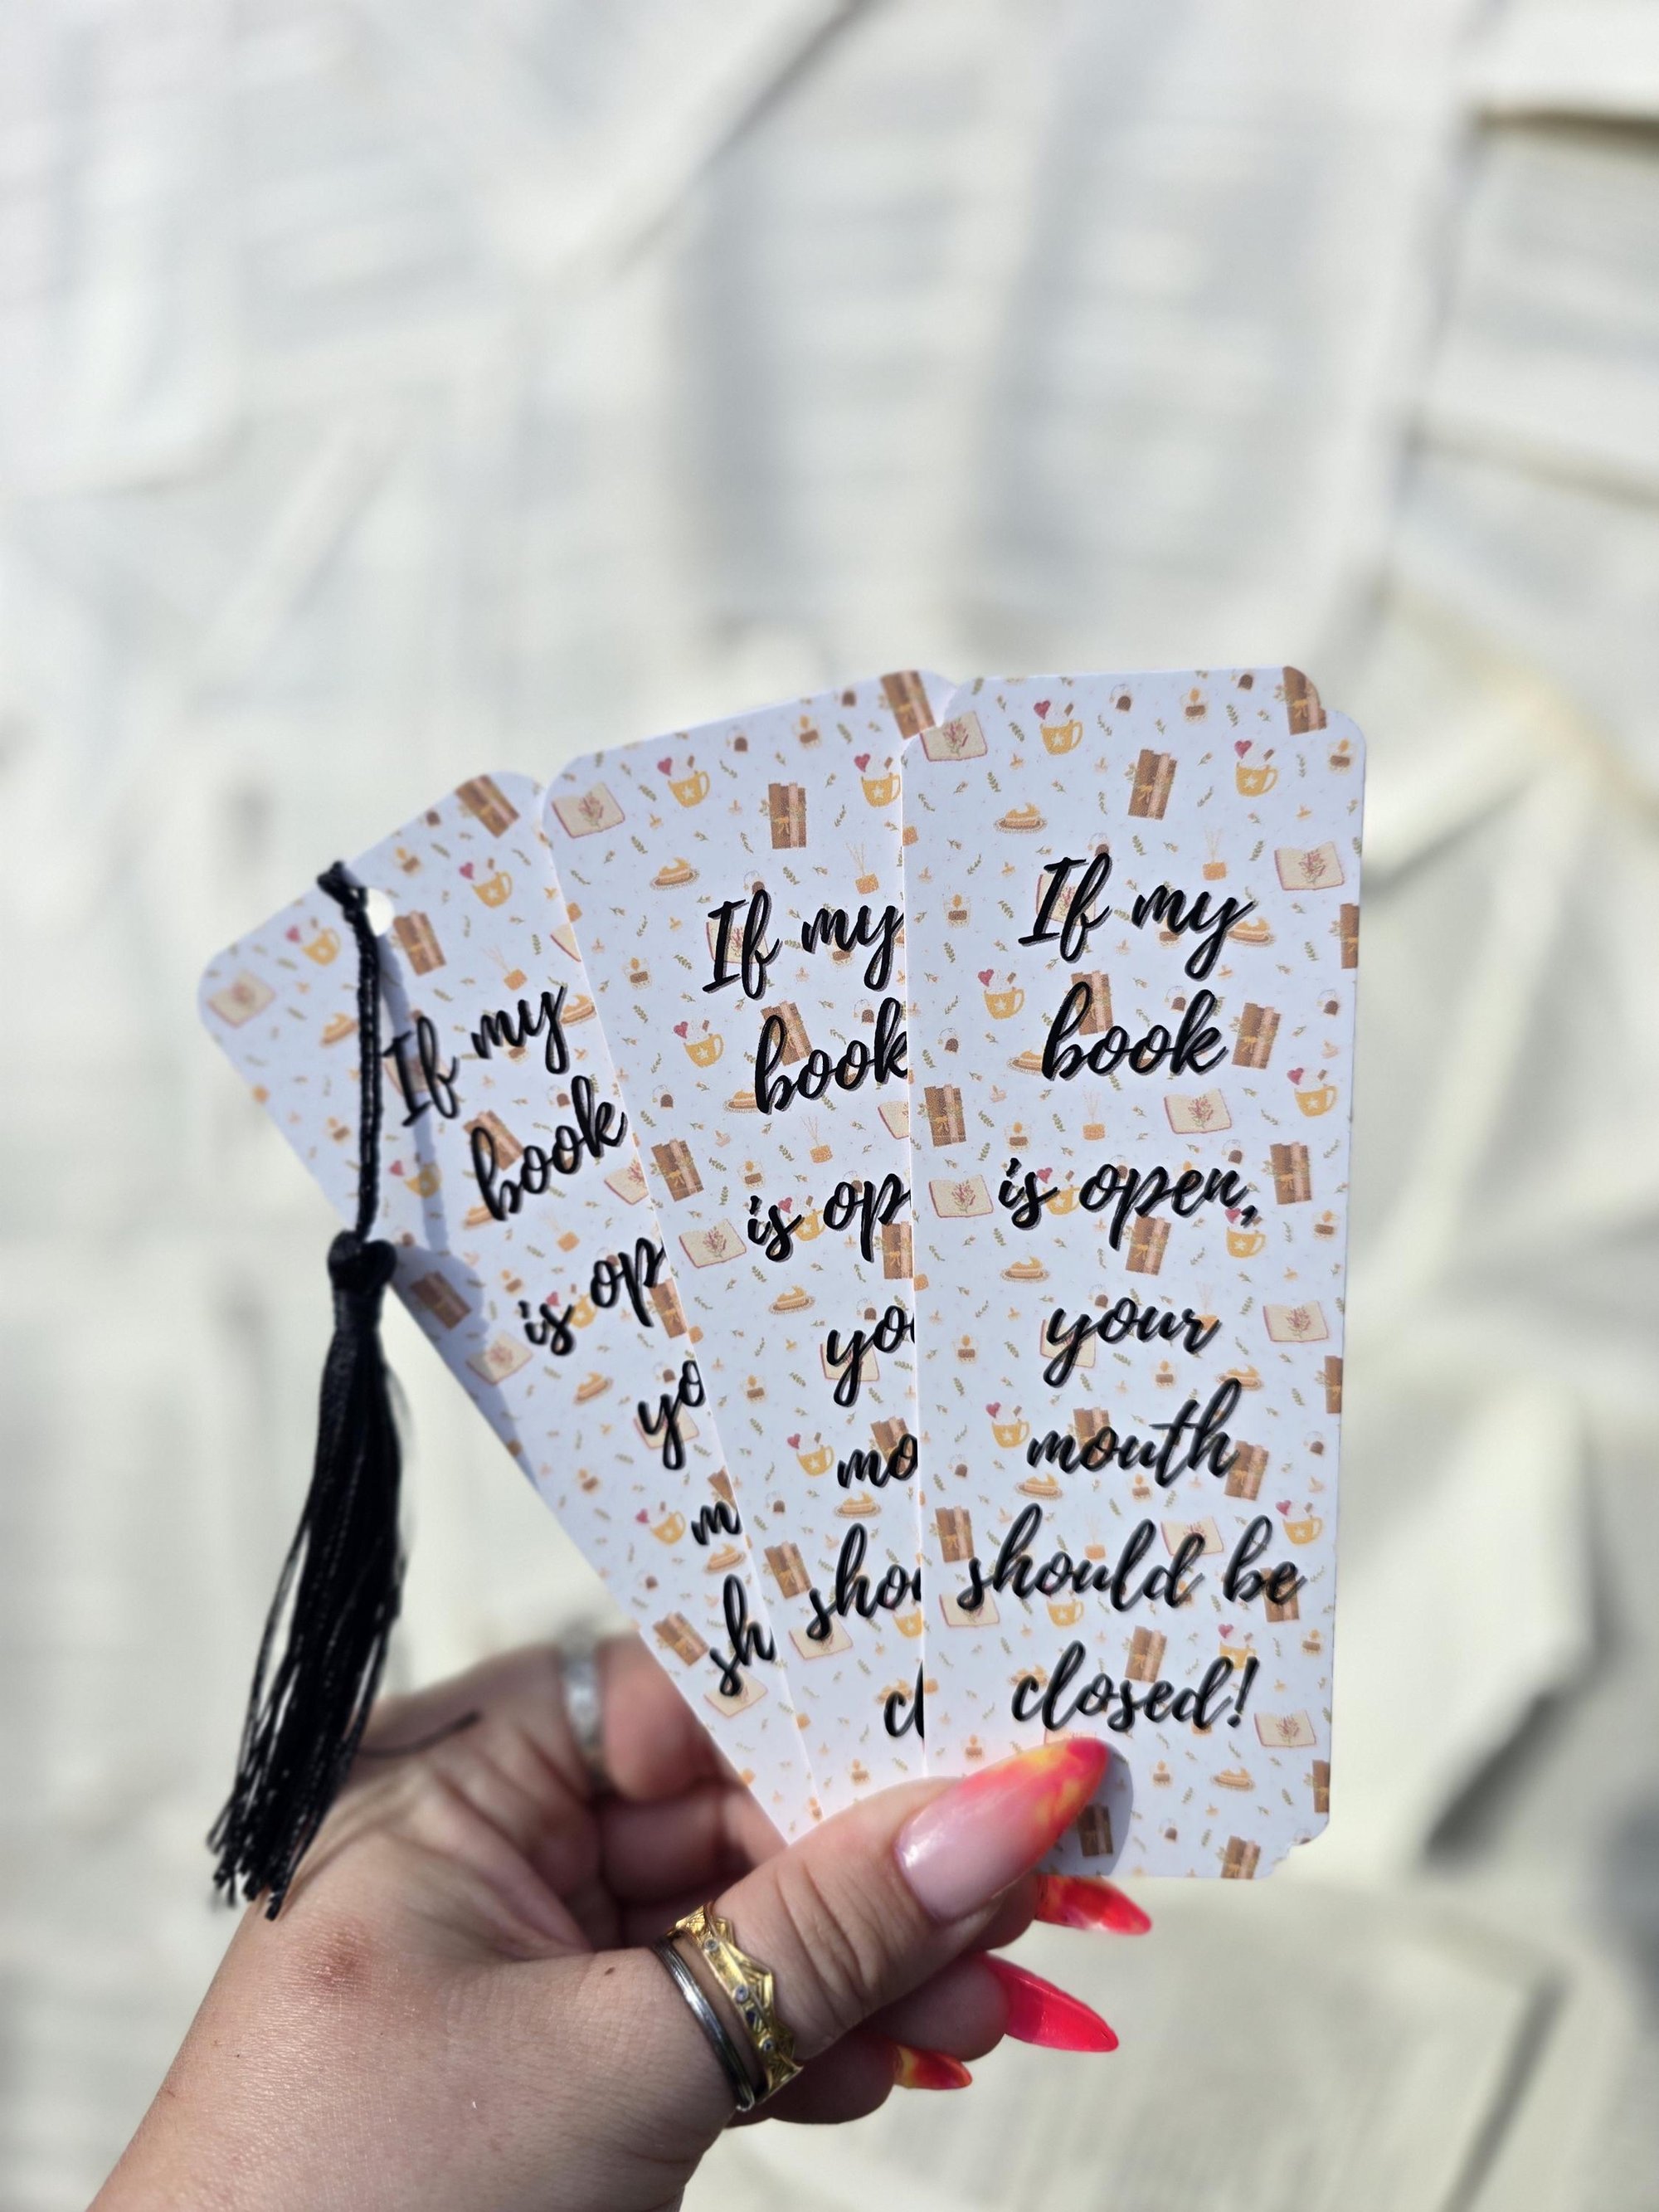 If my
book
is op
yo
m
sh
If my
book
is op
yo
mo
sho
cl
If my
book
is open,
your
mouth
should be
closed!